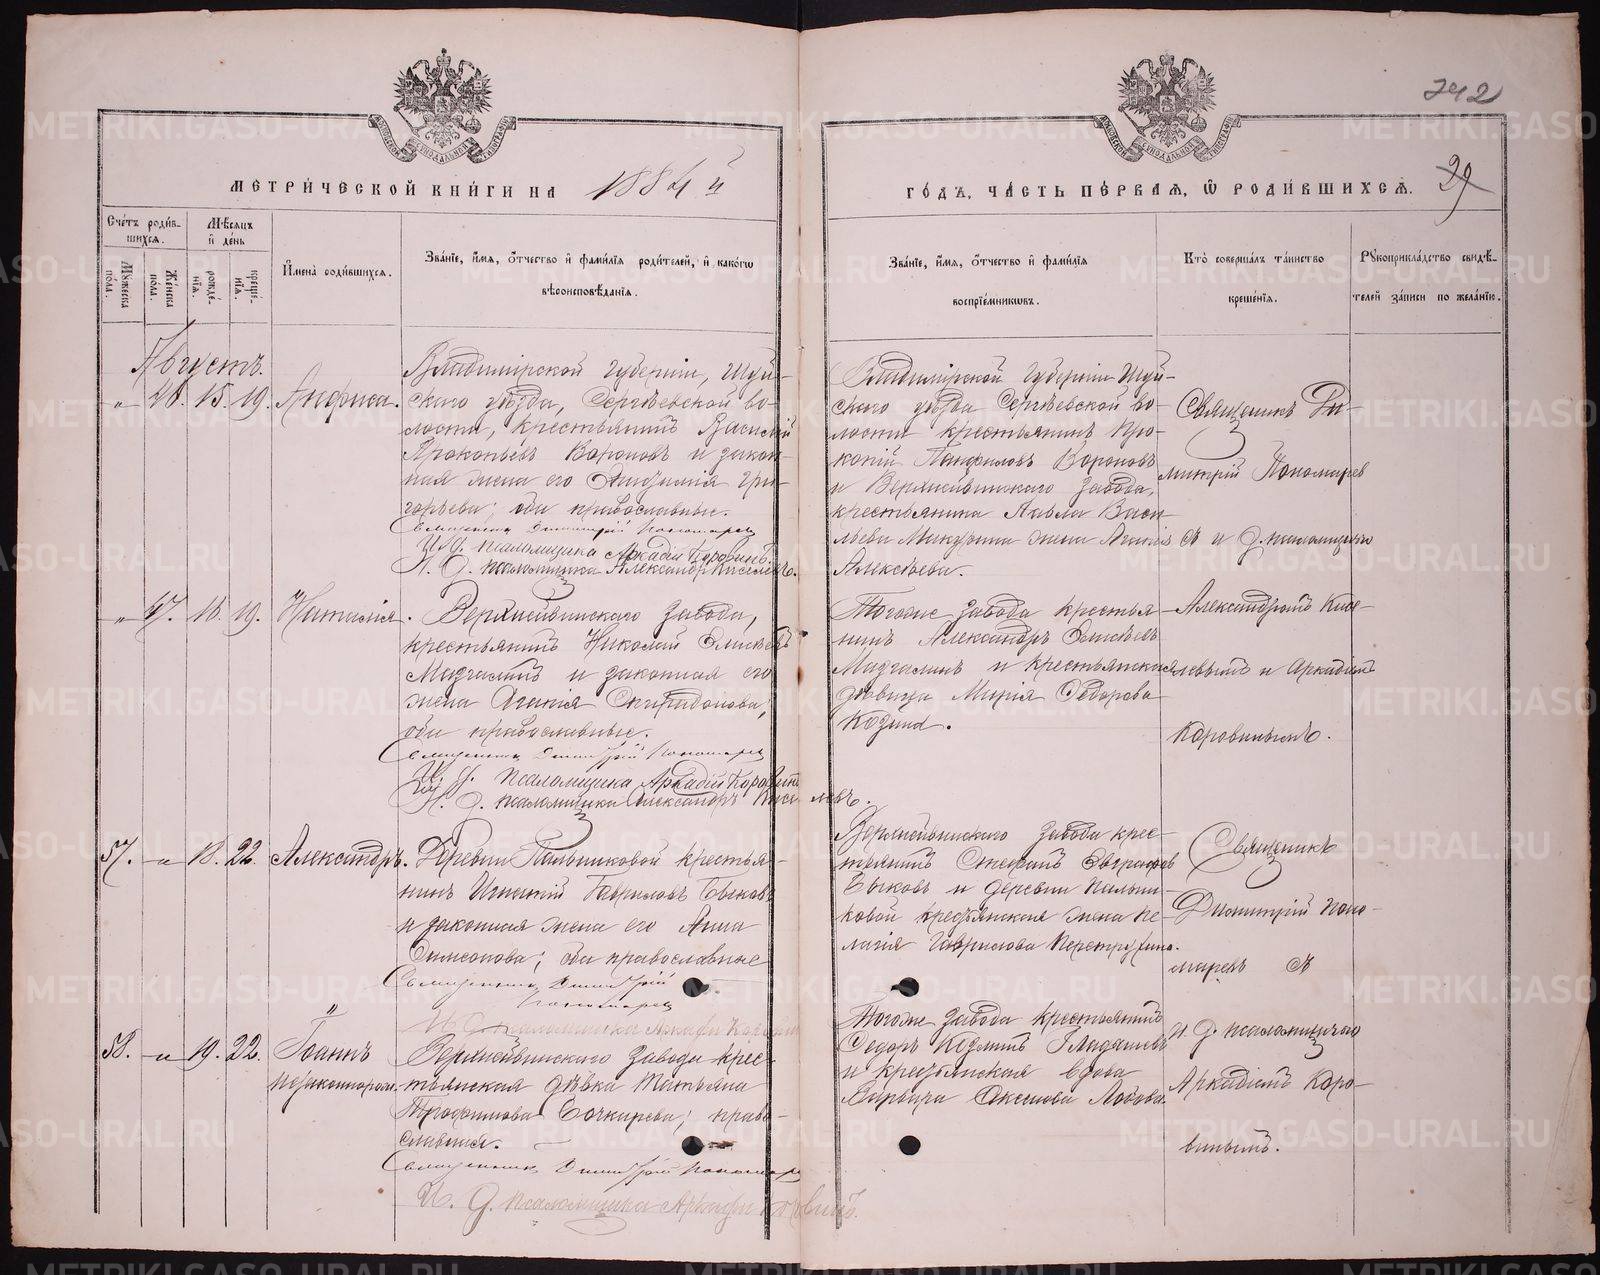 742
МЕТРИ́ЧЕСКОЙ КНИ́ГИ НА 1884 й
ГО́ДЪ, ЧА́СТЬ ПЕ́РВАЯ, Ѡ РОДИ́ВШИХСЯ. 29
Сче́тъ роди́вшихся.
Мѣ́сяцъ и҆ де́нь
Мꙋ́жеска по́ла.
Же́нска по́ла.
рожде́нїѧ.
креще́нїѧ.
И҆мена̀ роди́вшихся.
Зва́нїе, и҆́мя, ѻ҆́тчество и҆ фами́лїя роди́телей, и҆ како́гѡ
вѣроисповѣ́данїя.
Зва́нїе, и҆́мя, ѻ҆́тчество и҆ фами́лїя
воспрїе́мникѡвъ.
Кто̀ соверша́лъ та́инство
креще́нїя.
Рꙋкоприкла́дство свидѣ́-
телей за́писи по жела́нїю.
Августъ.
" 46. 15. 19. Анфиса.
Владимірской губерніи, Шуй-
скаго уѣзда, Сергѣевской во-
лости, крестьянинъ Василій
Прокопьевъ Вороновъ и закон-
ная жена его Епифанія Гри-
горьева; оба православные.
Священникъ Димитрій Пономаревъ
И. д. псаломщика Аркадій Коровинъ.
И. д. псаломщика Александръ Киселевъ.
Владимірской губерніи Шуй-
скаго уѣзда Сергѣевской во-
лости крестьянинъ Про-
копій Панфиловъ Вороновъ
и Верхнейвинскаго завода,
крестьянина Павла Васи-
льева жена
Алексѣева.
Священникъ Ди-
митрій Пономарев
ъ и и. д. псаломщика
" 47. 16. 19. Наталія.
Верхнейвинскаго завода,
крестьянинъ Николай Елисѣевъ
Мадгазинъ и законная его
жена Агапія Спиридонова;
оба православные.
Священникъ Димитрій Пономарев
И. д. псаломщика Аркадій Коровинъ
И. д. псаломщика Александръ Киселевъ.
Тогоже завода крестья-
нинъ Александръ Елисѣевъ
Мадгазинъ и крестьянская
дѣвица Марія Ѳедорова
Козина.
Александромъ Кисе-
левымъ и Аркадіем
Коровинымъ.
57. " 18. 22. Александръ.
Деревни Пальниковой крестья-
нинъ Игнатій Гавриловъ Быковъ
и законная жена его Анна
Симеонова; оба православные
Священникъ Димитрій
Пономарев
И. д. псаломщика Аркадій Коровин
Верхнейвинскаго завода крес-
тьянинъ Стефанъ Евграфов
Быковъ и деревни Пальни-
ковой крестьянская жена Пе-
лагія Гаврилова
Священникъ
Димитрій Поно-
маревъ съ
58. " 19. 22. Іоаннъ
незаконнорож.
Верхнейвинскаго завода крес-
тьянская дѣвка Татьяна
Трофимова Бочкарева; право-
славная.
Священникъ Димитрій Пономарев
И. д. псаломщика Аркадій Коровинъ.
Тогоже завода крестьянинъ
Ѳедоръ Козминъ Гладышевъ
и крестьянская вдова
Варвара Аксенова Лобова.
и. д. псаломщика
Аркадіемъ Коро-
винымъ.
METRIKI.GASO-URAL.RU